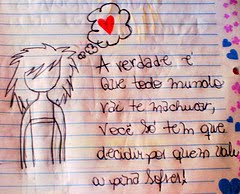 A verdade é
que todo mundo
vai te machucar,
você só tem que
decidir por quem vale
a pena sofrer!